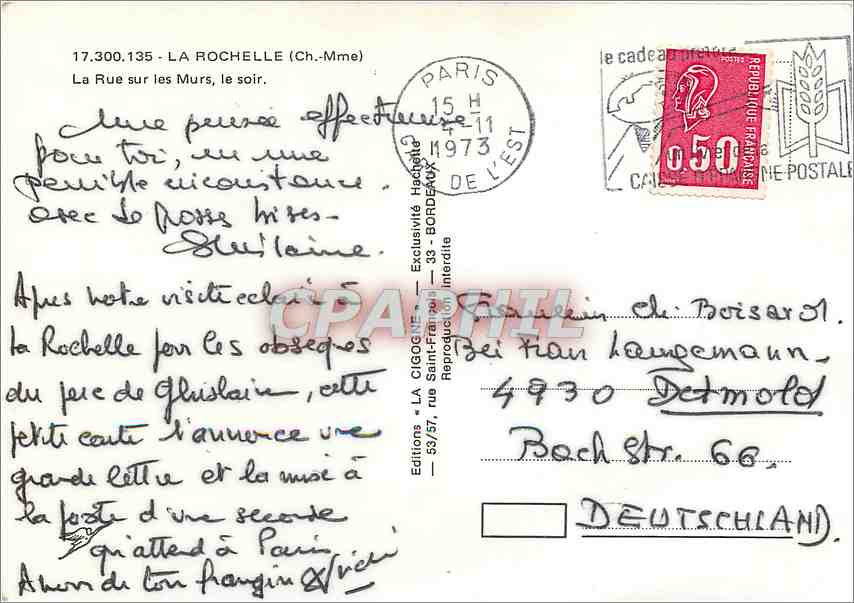 17.300.135 - LA ROCHELLE (Ch.-Mme)
La Rue sur les Murs, le soir.
Une pensée affectueuse
pour toi, en une
pénible circonstance.
avec de grosses bises -
Ghislaine.
Après notre visite éclair à
La Rochelle pour les obsèques
du père de Ghislaine, cette
petite carte t'annonce une
grande lettre et la mise à
la poste d'une seconde
qui attend à Paris
A bientôt ton frangin
Editions « LA CIGOGNE » — Exclusivité Hachette
— 53/57, rue Saint-François — 33 - BORDEAUX
Reproduction Interdite
PARIS
15 H
4-11
1973
GARE DE L'EST
le cadeau préféré
CAISSE D'EPARGNE POSTALE
POSTES
REPUBLIQUE FRANÇAISE
0.50
CPAPHIL
Fraulein Ch. Boisard.
Bei Frau Langemann -
4930 Detmold
Bach Str. 66.
DEUTSCHLAND.